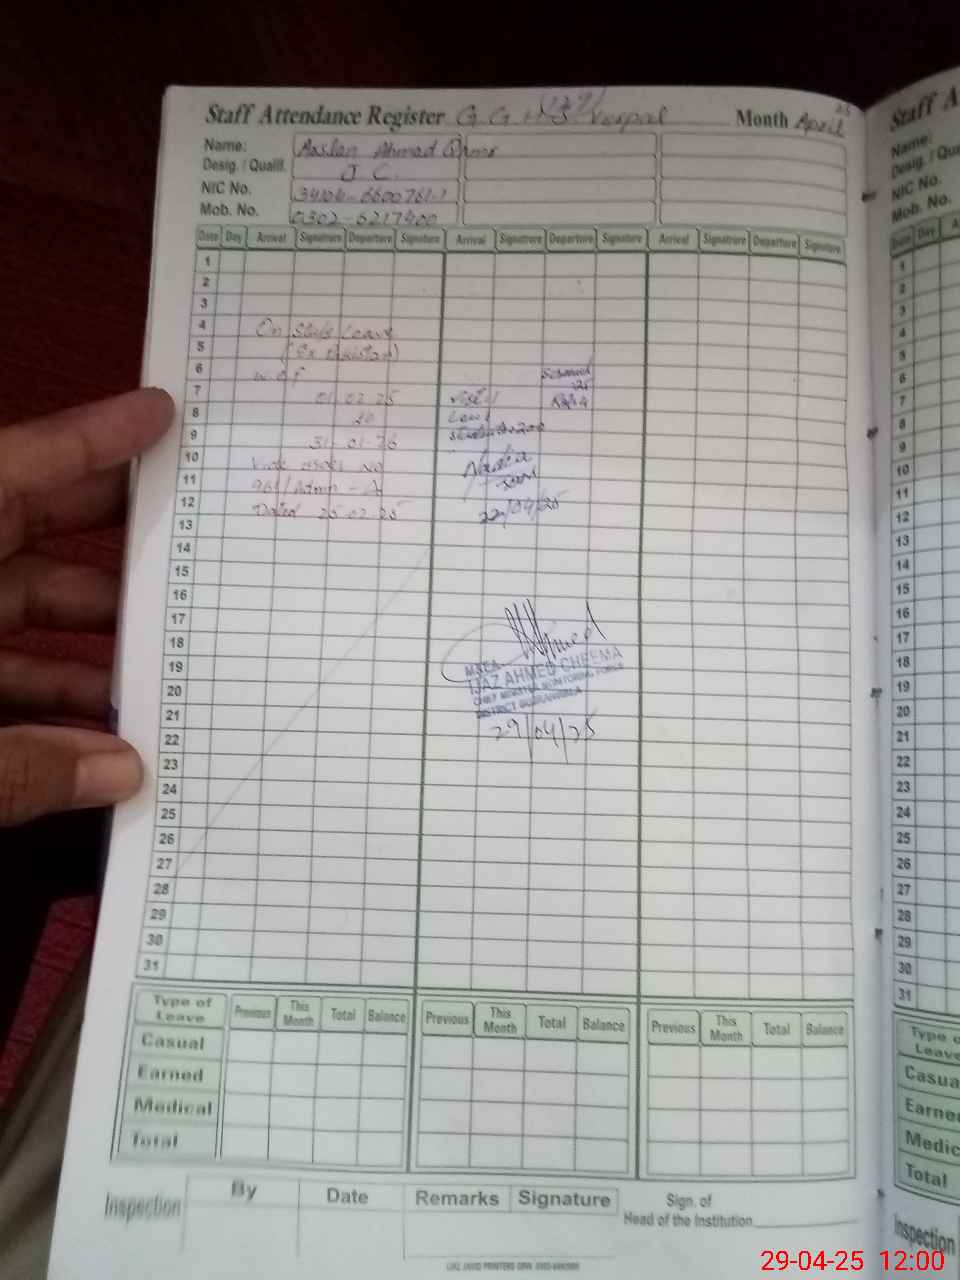 Staff Attendance Register G. G. H. S. Verpal Month April 25
Name: Ahmad
Desig. / Qualif. J C.
NIC No.
Mob. No. 0302-6217400
Date Day Arrival Signatrure Departure Signature Arrival Signatrure Departure Signature Arrival Signatrure Departure Signature
1
2
3
4 On Leave
5
6 w.e.f
7 01.02.25 Visit
8
9 31.01.26 200
10 No
11 961/Admn-A
12 Dated 25.02.25 22/04/25
13
14
15
16
17
18 Ahmed
19 M&EA
20 IJAZ AHMED CHEEMA
CHIEF MINISTER MONITORING FORCE
21 DISTRICT GUJRANWALA
22 29/04/25
23
24
25
26
27
28
29
30
31
Type of Leave Previous This Month Total Balance Previous This Month Total Balance Previous This Month Total Balance
Casual
Earned
Medical
Total
Inspection By Date Remarks Signature Sign. of
Head of the Institution
Staff A
Name:
Desig. / Qua
NIC No.
Mob. No.
Date Day A
1
2
3
4
5
6
7
8
9
10
11
12
13
14
15
16
17
18
19
20
21
22
23
24
25
26
27
28
29
30
31
Type o
Leave
Casua
Earne
Medic
Total
Inspection
29-04-25 12:00